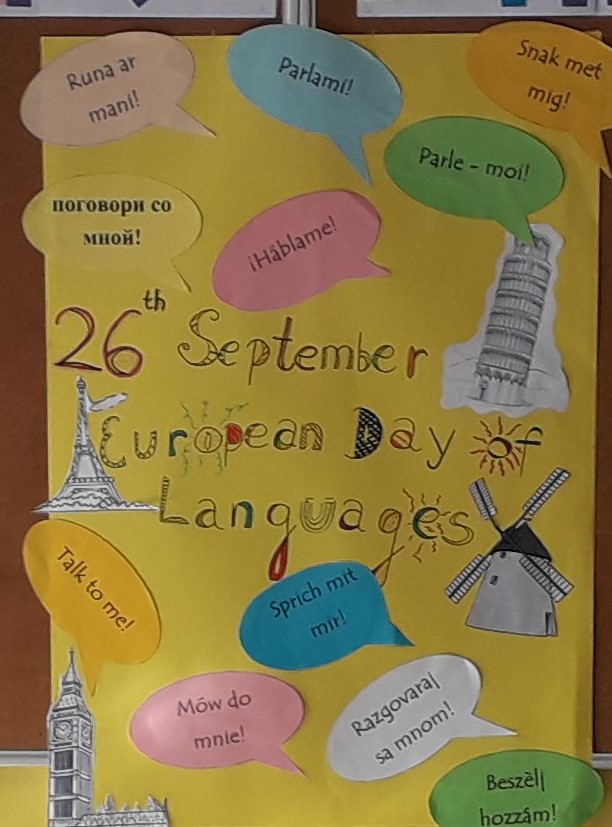 Runa ar
mani!
Parlami!
Snak met
mig!
Parle - moi!
поговори со
мной!
¡Háblame!
26th September
European Day of
Languages
Talk to me!
Sprich mit
mir!
Mów do
mnie!
Razgovaraj
sa mnom!
Beszèlj
hozzám!